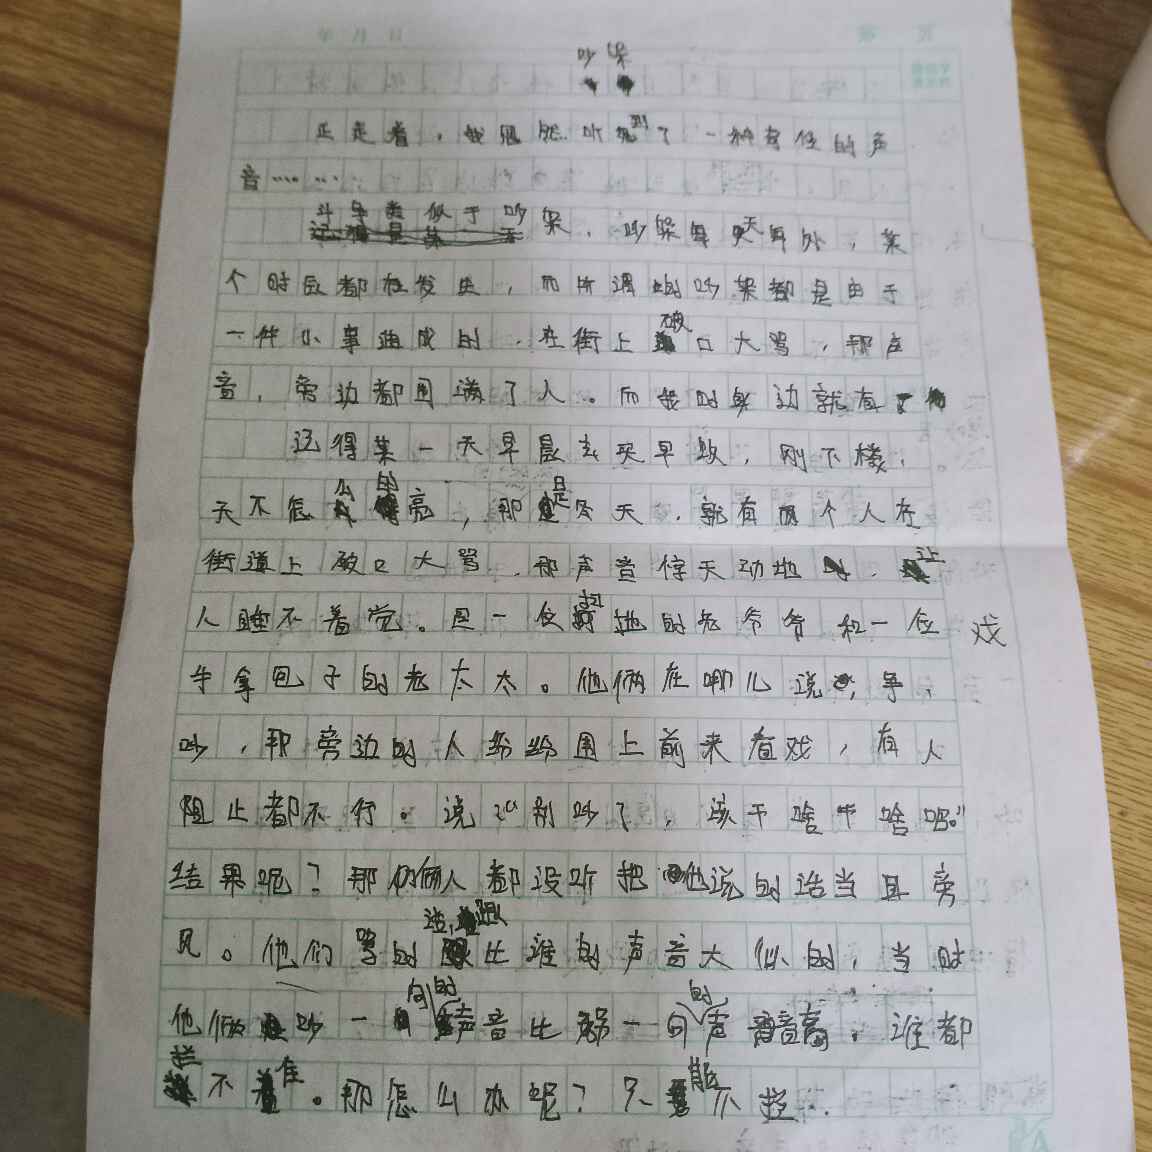 年 月 日
吵架
正走着，我忽然听到了一种奇怪的声
音……
斗争类似于吵架，吵架每天每处，某
个时辰都在发生，而所谓的吵架都是由于
一件小事造成的，在街上破口大骂，那声
音，旁边都围满了人。而我的身边就有
记得某一天早晨去买早饭，刚下楼，
天不怎么的亮，那是冬天，就有两个人在
街道上破口大骂，那声音惊天动地，让
人睡不着觉。是一位扫地的老爷爷和一位
手拿包子的老太太。他俩在哪儿说，争，
吵，那旁边的人纷纷围上前来看戏，有人 戏
阻止都不行。说："别吵了，该干啥干啥吧。"
结果呢？那俩人都没听把他说的话当耳旁
风。他们骂的话，跟比谁的声音大似的，当时
他俩吵一句的声音比另一句的声音高。谁都
拦不准。那怎么办呢？只能不拦.